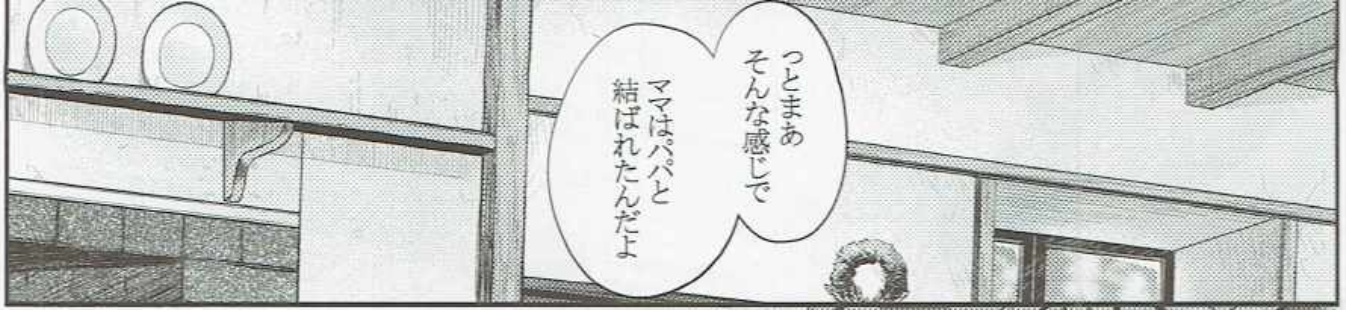 っとまあ
そんな感じで
ママはパパと
結ばれたんだよ